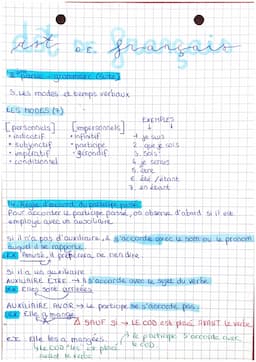 dst DE français
2e partie - grammaire (suite)
3. Les modes et temps verbaux
LES MODES (7)
EXEMPLES
[personnels] [impersonnels]
• indicatif • infinitif 1. je suis
• subjonctif • participe 2. que je sois
• impératif • gérondif 3. sois!
• conditionnel 4. je serais
5. être
6. été / étant
7. en étant
4. Règle d'accord du participe passé
Pour accorder le participe passé, on observe d'abord s'il est
employé avec un auxiliaire.
s'il n'a pas d'auxiliaire, il s'accorde avec le nom ou le pronom
auquel il se rapporte.
ex: Amusé, il préférera ne rien dire.
s'il a un auxiliaire
AUXILIAIRE ÊTRE → il s'accorde avec le sujet du verbe.
ex: Elles sont arrivées
AUXILIAIRE AVOIR → Le participe ne s'accorde pas.
ex: Elle a mangé
⚠ SAUF SI → LE COD est placé AVANT le verbe.
ex: Elle les a mangées. le participe s'accorde avec
le COD "les" est placé le COD.
avant le verbe